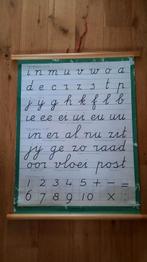 i n m u v w o a
d e c r z s t p
j y g h k f l b
ie ee ei ui eu uu
in er al nu zit
jy ge zo raad
oor vloer post
1 2 3 4 5 + - =
6 7 8 9 10 ×